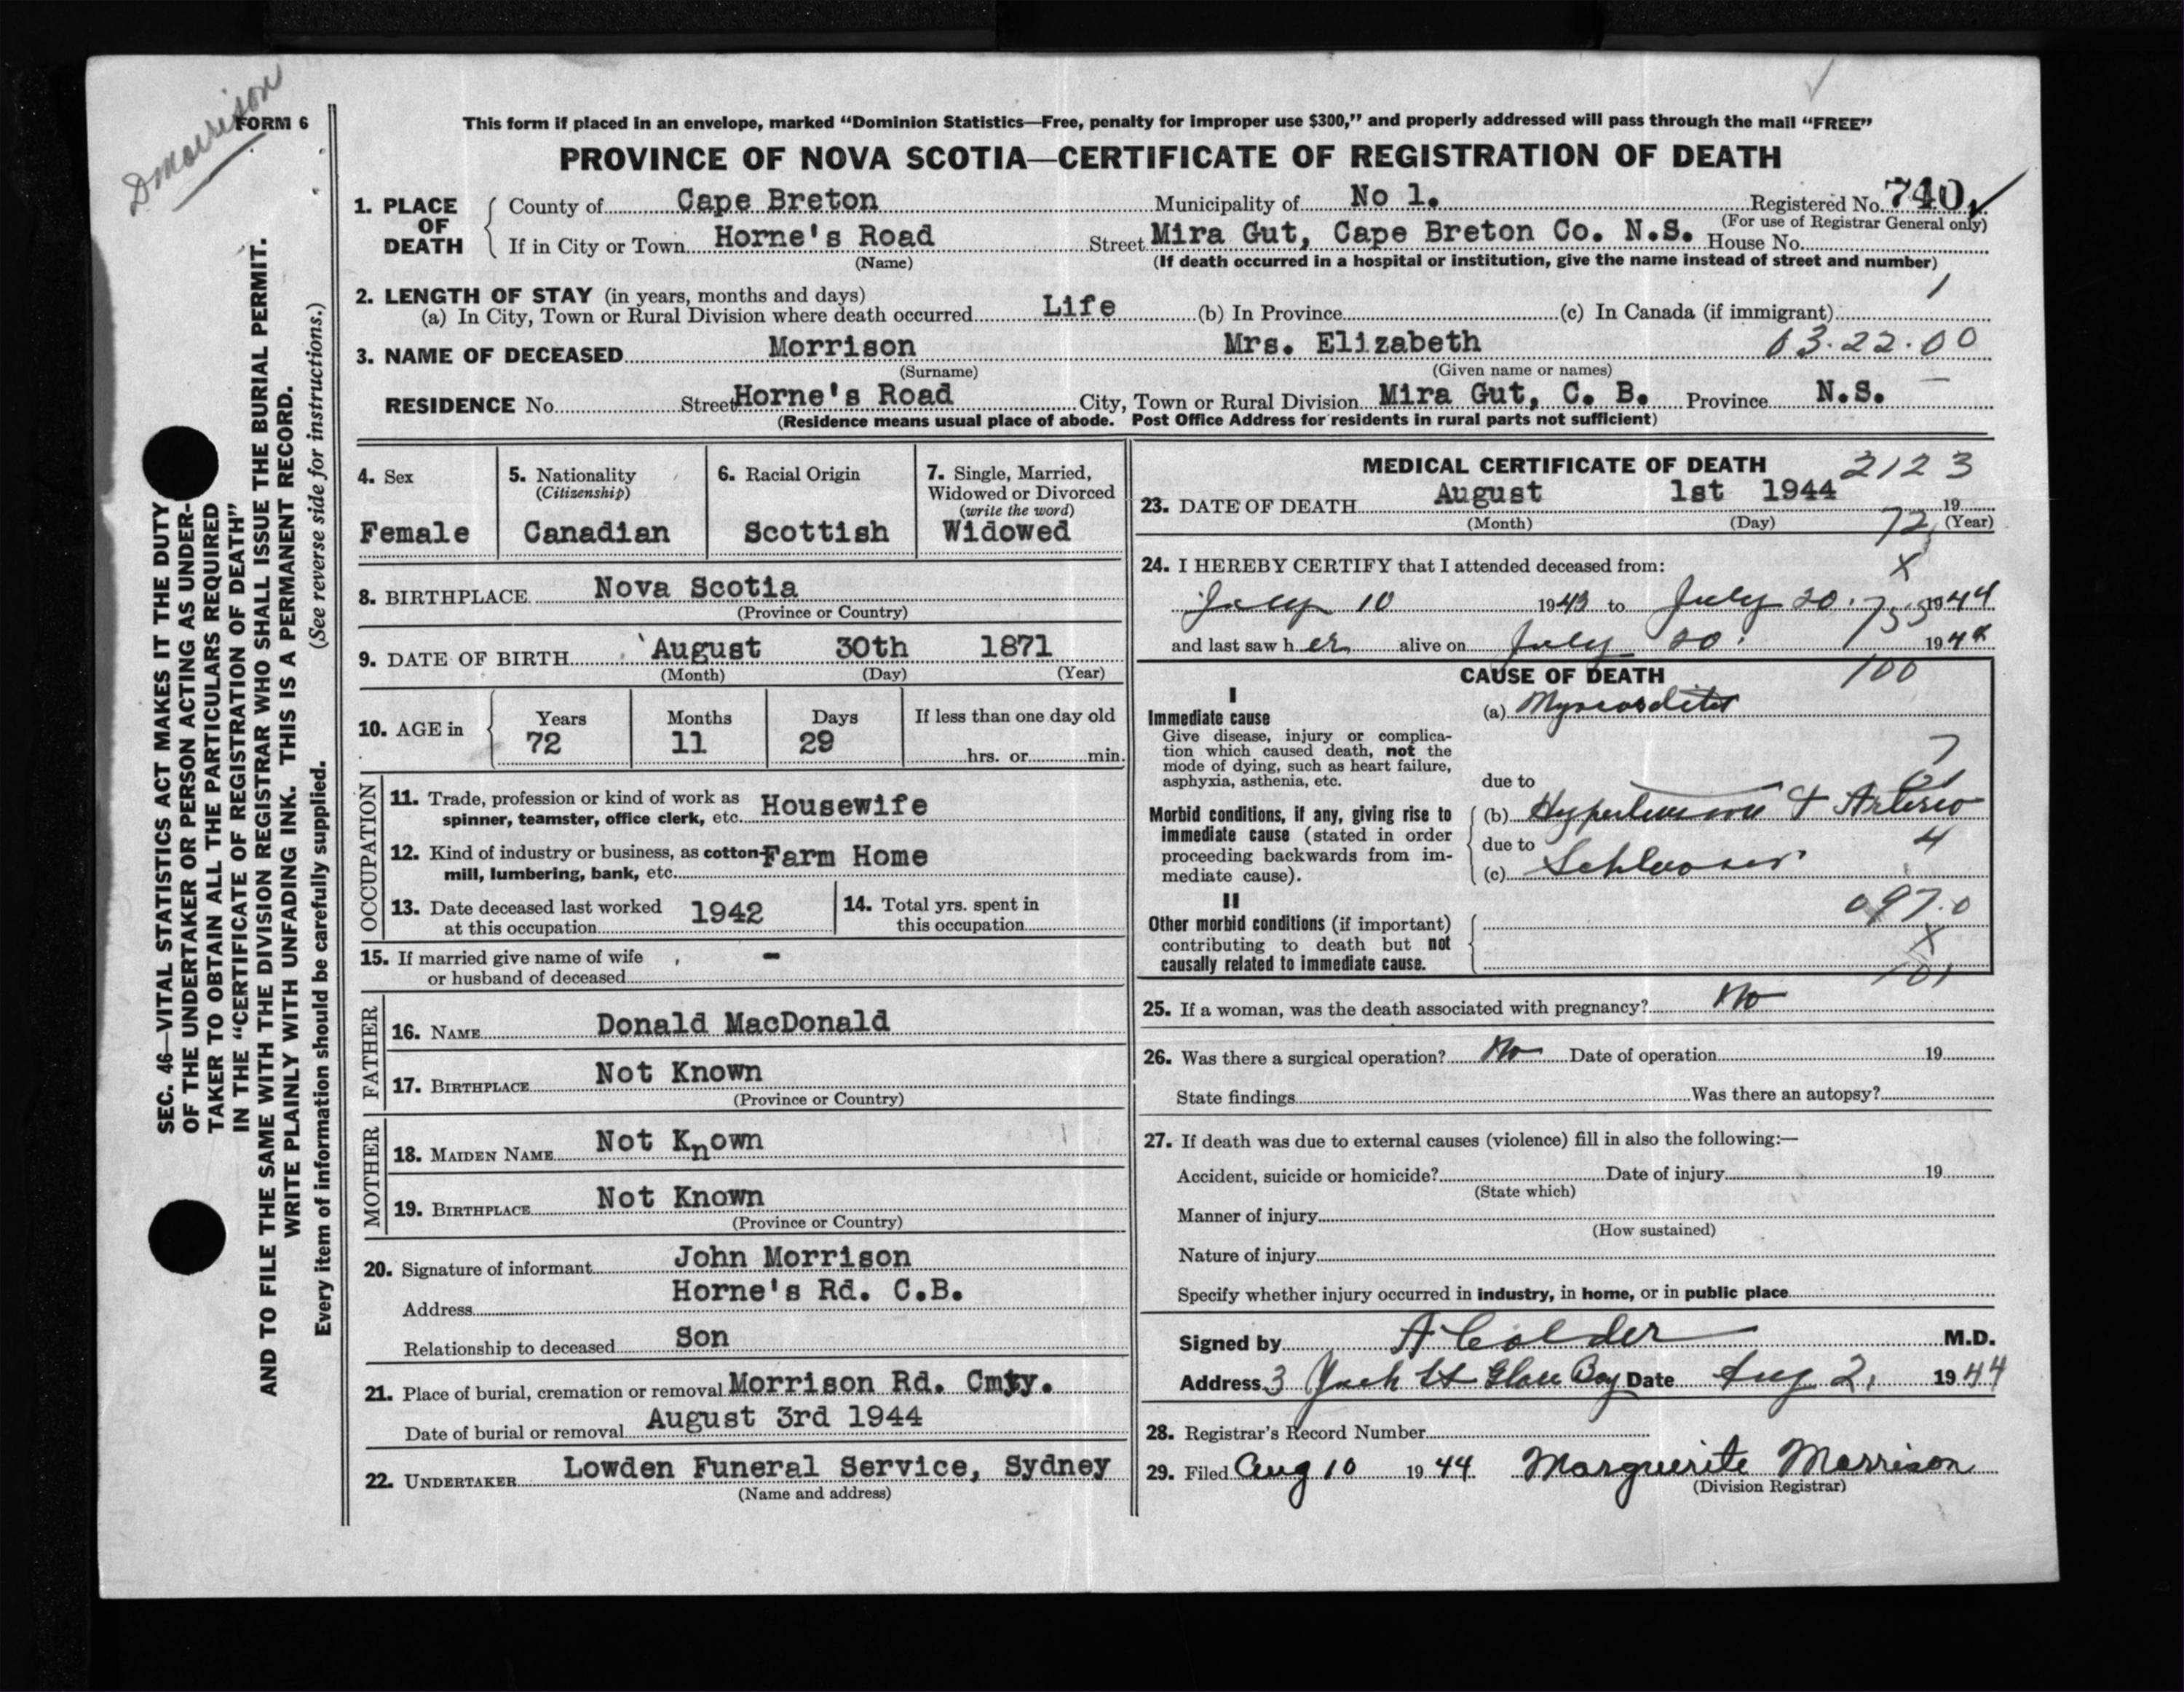 DMorrison
FORM 6
This form if placed in an envelope, marked “Dominion Statistics—Free, penalty for improper use $300,” and properly addressed will pass through the mail “FREE”
PROVINCE OF NOVA SCOTIA—CERTIFICATE OF REGISTRATION OF DEATH
SEC. 46—VITAL STATISTICS ACT MAKES IT THE DUTY
OF THE UNDERTAKER OR PERSON ACTING AS UNDER-
TAKER TO OBTAIN ALL THE PARTICULARS REQUIRED
IN THE “CERTIFICATE OF REGISTRATION OF DEATH”
AND TO FILE THE SAME WITH THE DIVISION REGISTRAR WHO SHALL ISSUE THE BURIAL PERMIT.
WRITE PLAINLY WITH UNFADING INK. THIS IS A PERMANENT RECORD.
Every item of information should be carefully supplied. (See reverse side for instructions.)
1. PLACE OF DEATH
County of Cape Breton Municipality of No 1. Registered No. 740
(For use of Registrar General only)
If in City or Town Horne's Road Street Mira Gut, Cape Breton Co. N.S. House No.
(Name) (If death occurred in a hospital or institution, give the name instead of street and number)
2. LENGTH OF STAY (in years, months and days) 1
(a) In City, Town or Rural Division where death occurred Life (b) In Province (c) In Canada (if immigrant)
3. NAME OF DECEASED Morrison Mrs. Elizabeth 03.22.00
(Surname) (Given name or names)
RESIDENCE No. Street Horne's Road City, Town or Rural Division Mira Gut, C. B. Province N.S.
(Residence means usual place of abode. Post Office Address for residents in rural parts not sufficient)
4. Sex
Female
5. Nationality
(Citizenship)
Canadian
6. Racial Origin
Scottish
7. Single, Married,
Widowed or Divorced
(write the word)
Widowed
8. BIRTHPLACE Nova Scotia
(Province or Country)
9. DATE OF BIRTH August 30th 1871
(Month) (Day) (Year)
10. AGE in
Years Months Days If less than one day old
72 11 29 hrs. or min.
OCCUPATION
11. Trade, profession or kind of work as
spinner, teamster, office clerk, etc. Housewife
12. Kind of industry or business, as cotton-
mill, lumbering, bank, etc. Farm Home
13. Date deceased last worked
at this occupation 1942
14. Total yrs. spent in
this occupation
15. If married give name of wife
or husband of deceased -
FATHER
16. NAME Donald MacDonald
17. BIRTHPLACE Not Known
(Province or Country)
MOTHER
18. MAIDEN NAME Not Known
19. BIRTHPLACE Not Known
(Province or Country)
20. Signature of informant John Morrison
Address Horne's Rd. C.B.
Relationship to deceased Son
21. Place of burial, cremation or removal Morrison Rd. Cmty.
Date of burial or removal August 3rd 1944
22. UNDERTAKER Lowden Funeral Service, Sydney
(Name and address)
MEDICAL CERTIFICATE OF DEATH 2123
23. DATE OF DEATH August 1st 1944 19
(Month) (Day) (Year)
72
24. I HEREBY CERTIFY that I attended deceased from:
X
July 10 1943 to July 20. 1944
and last saw her alive on July 20. 1944
CAUSE OF DEATH 100
I
Immediate cause
Give disease, injury or complica-
tion which caused death, not the
mode of dying, such as heart failure,
asphyxia, asthenia, etc.
(a) Myocarditis
due to
Morbid conditions, if any, giving rise to
immediate cause (stated in order
proceeding backwards from im-
mediate cause).
7
61
(b) Hypertension & Arterio
due to 4
(c) Schlerosis
II
Other morbid conditions (if important)
contributing to death but not
causally related to immediate cause.
097.0
X
101
25. If a woman, was the death associated with pregnancy? No
26. Was there a surgical operation? No Date of operation 19
State findings Was there an autopsy?
27. If death was due to external causes (violence) fill in also the following:—
Accident, suicide or homicide? Date of injury 19
(State which)
Manner of injury
(How sustained)
Nature of injury
Specify whether injury occurred in industry, in home, or in public place
Signed by A Calder M.D.
Address 3 York St Glace Bay Date Aug 2, 1944
28. Registrar's Record Number
29. Filed Aug 10 1944 Marguerite Morrison
(Division Registrar)